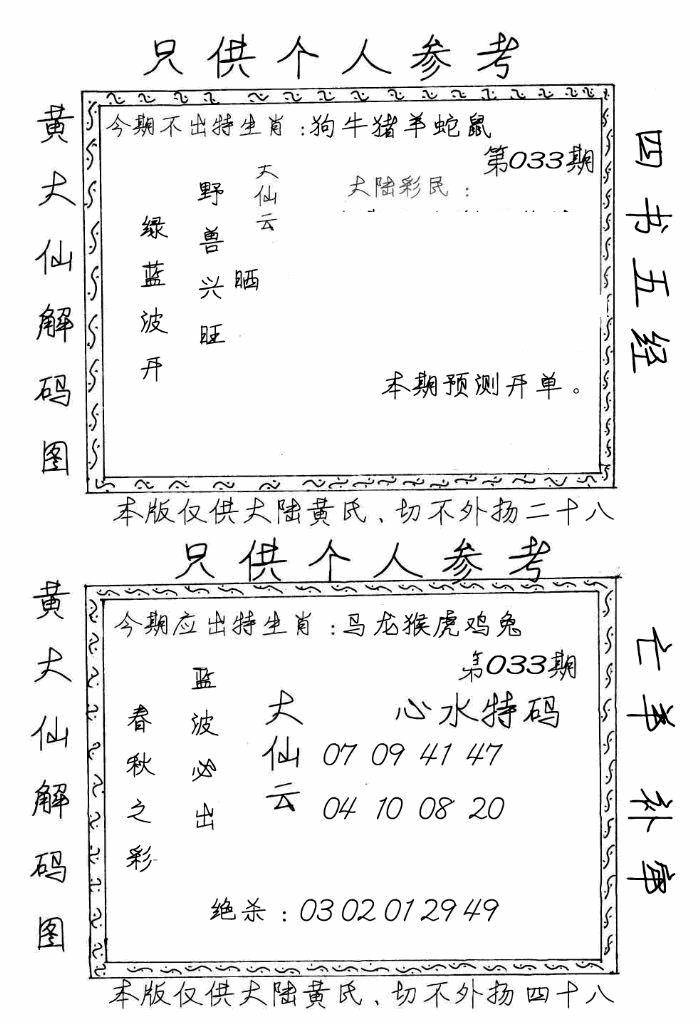 只供个人参考
黄大仙解码图
今期不出特生肖：狗牛猪羊蛇鼠
第033期
大陆彩民：
大仙云
晒
野兽兴旺
绿蓝波开
本期预测开单。
四书五经
本版仅供大陆黄氏、切不外扬二十八
只供个人参考
黄大仙解码图
今期应出特生肖：马龙猴虎鸡兔
第033期
蓝波必出
春秋之彩
大仙云
心水特码
07 09 41 47
04 10 08 20
绝杀：03 02 01 29 49
亡羊补牢
本版仅供大陆黄氏、切不外扬四十八